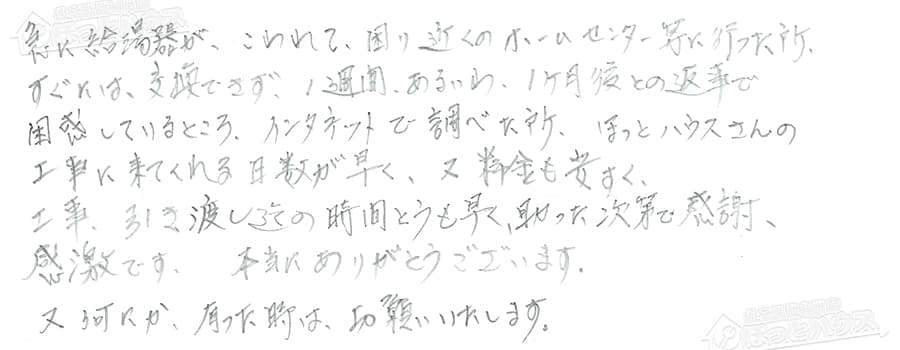 急に給湯器が、こわれて、困り近くのホームセンター等に行った所、
すぐには、交換できず、1週間、あるいわ、1ヶ月後との返事で
困惑しているところ、インタネットで調べた所、ほっとハウスさんの
工事に来てくれる日数が早く、又料金も安すく、
工事、引き渡し迄の時間とうも早く、助った次第で感謝、
感激です、本当にありがとうございます。
又何にか、有った時は、お願いいたします。
ほっとハウス